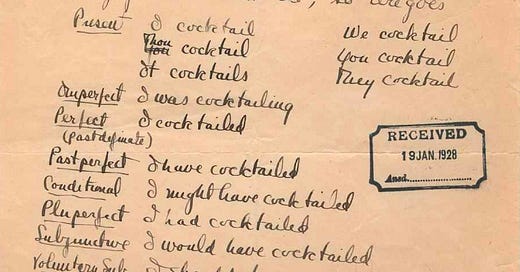 so here goes
Present I cocktail We cocktail
Thou cocktail You cocktail
It cocktails They cocktail
Imperfect I was cocktailing
Perfect I cocktailed
(past definate)
RECEIVED
19 JAN. 1928
Ansd.
Past perfect I have cocktailed
Conditional I might have cocktailed
Pluperfect I had cocktailed
Subjunctive I would have cocktailed
Voluntary Sub. I